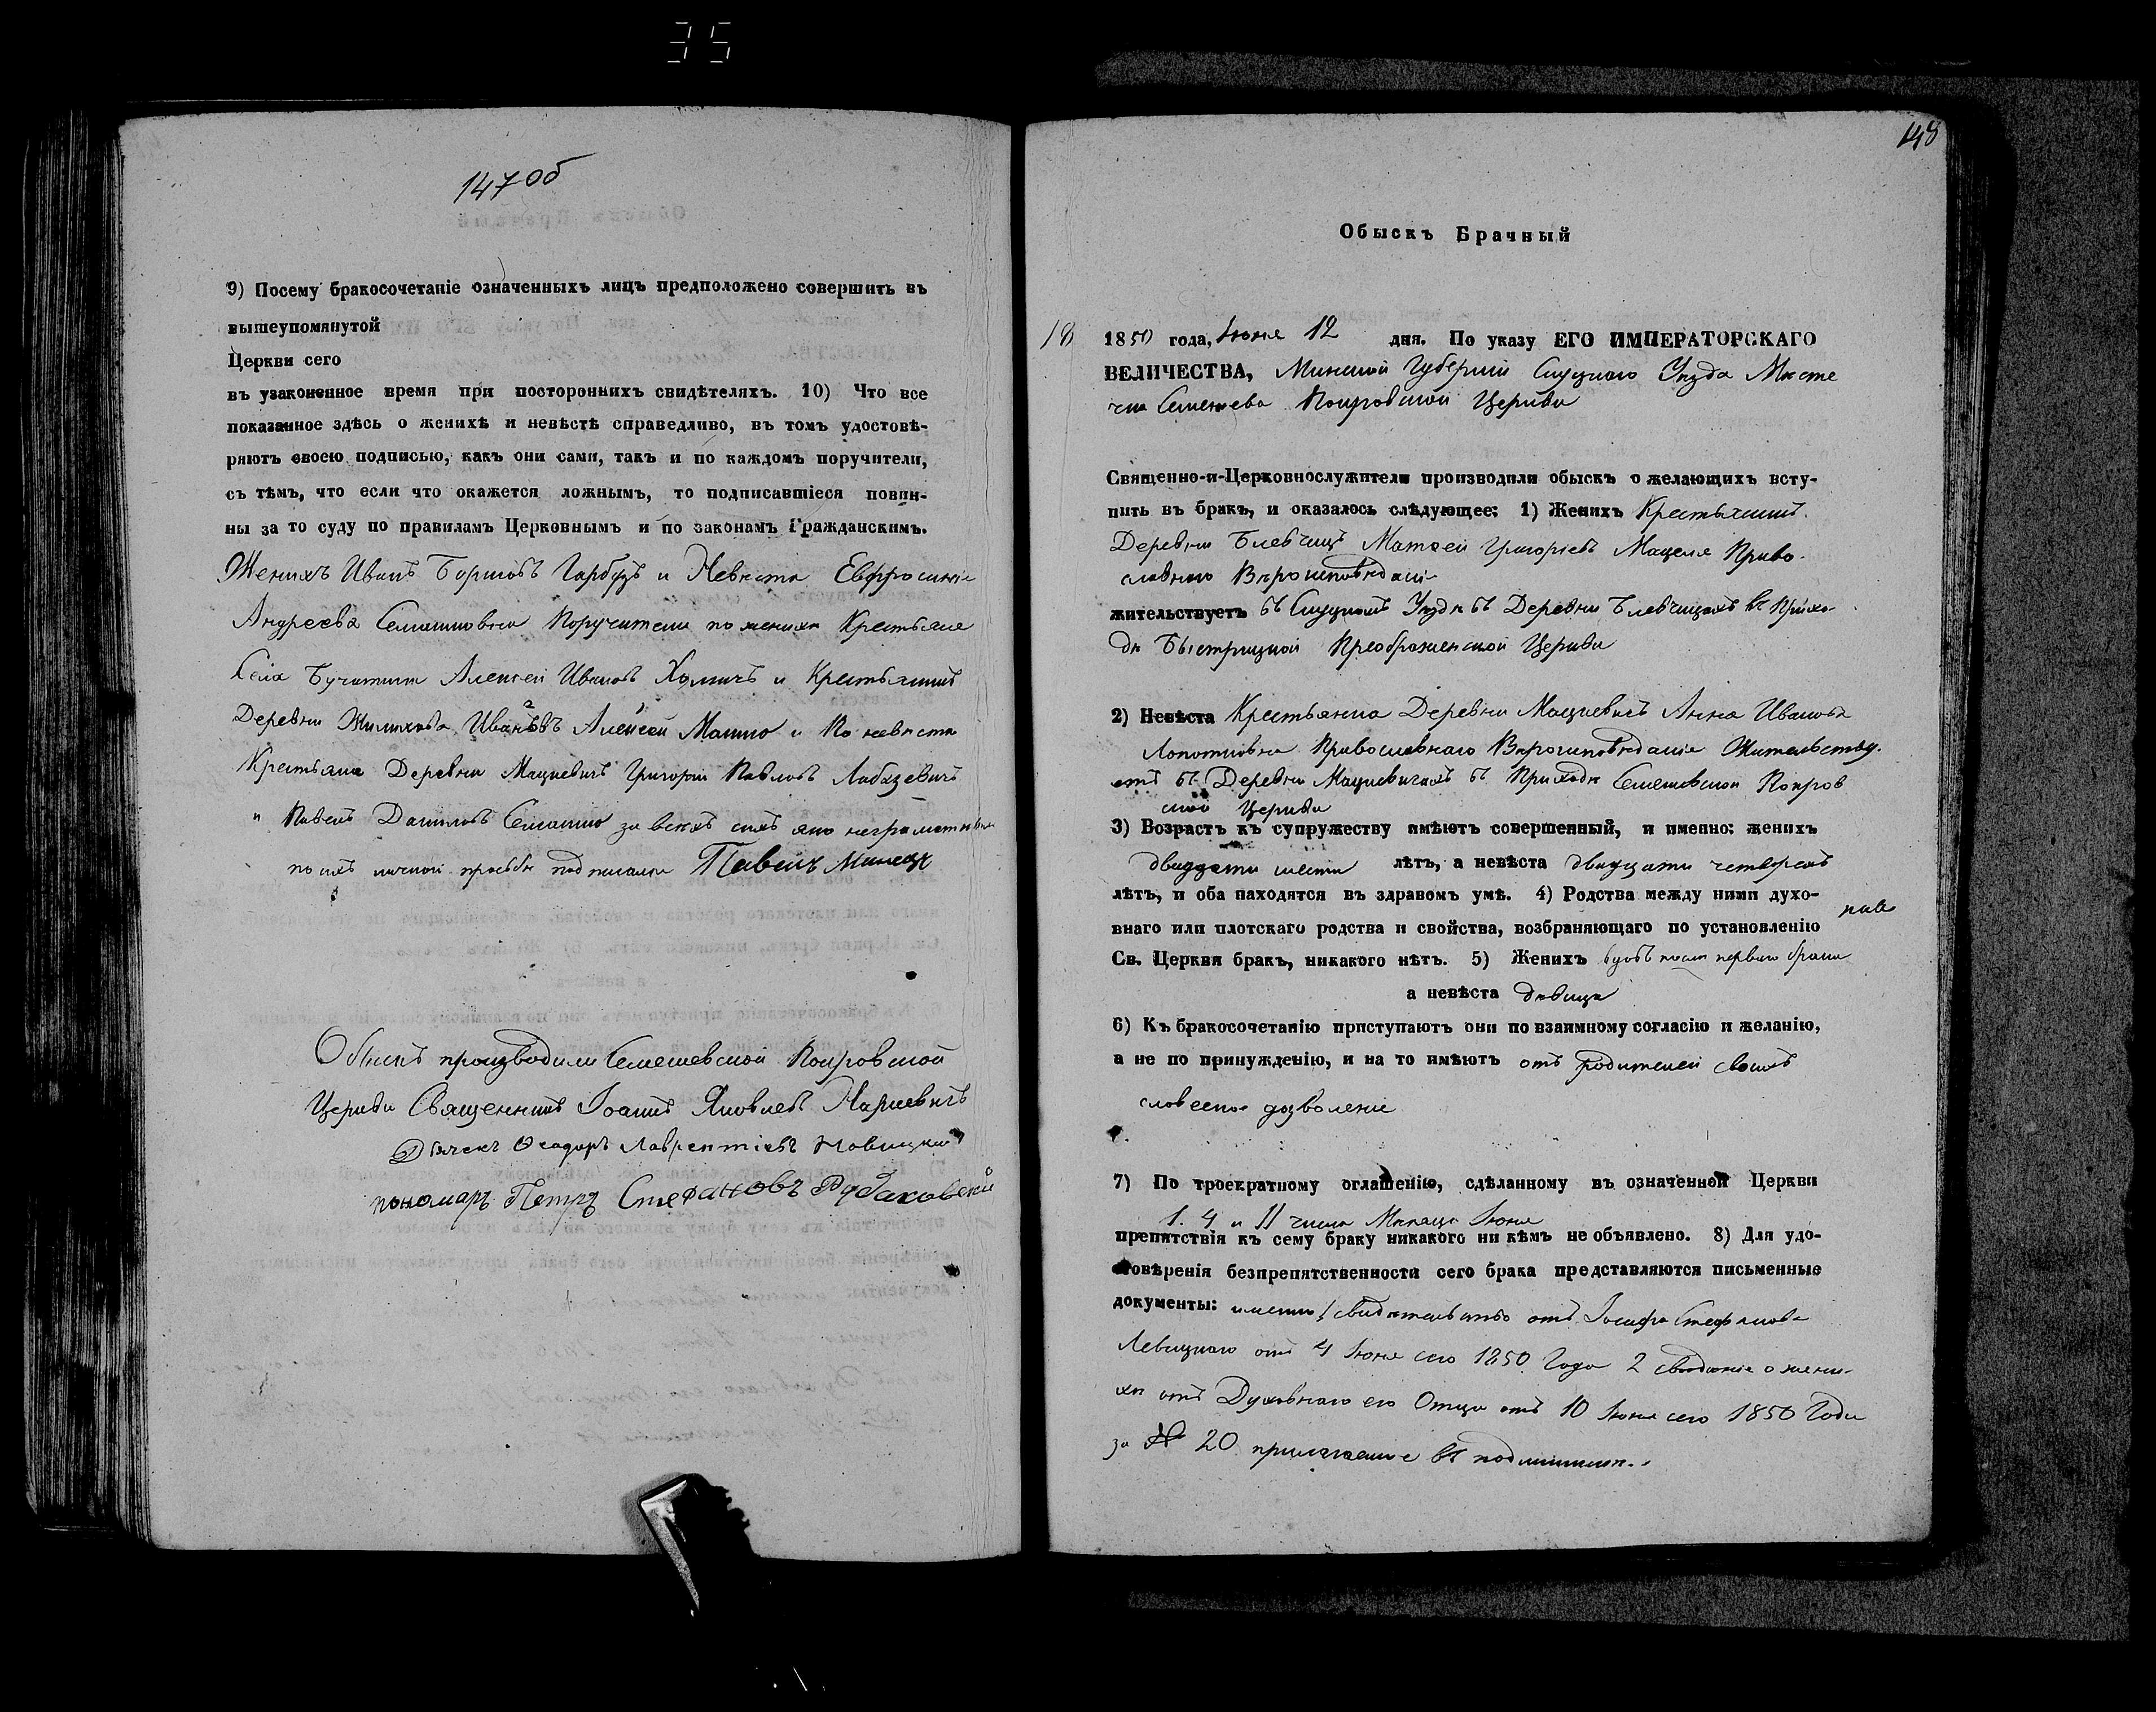 35
147 об
9) Посему бракосочетаніе означенныхъ лицъ предположено совершить въ
вышеупомянутой
Церкви сего
въ узаконенное время при постороннихъ свидѣтеляхъ. 10) Что все
показанное здѣсь о женихѣ и невѣстѣ справедливо, въ томъ удостовѣ-
ряютъ своею подписью, какъ они сами, такъ и по каждомъ поручители,
съ тѣмъ, что если что окажется ложнымъ, то подписавшіеся повин-
ны за то суду по правиламъ Церковнымъ и по законамъ Гражданскимъ.
Женихъ Иванъ Гарбузъ и Невѣста Евфросинія
Андреева Семашковна Поручители по женихѣ Крестьяне
Села Бучатина Алексей Ивановъ и Крестьянинъ
Деревни Жилихова Ивановъ Алексей Машко и По невѣстѣ
Крестьяне Деревни Мацкевичъ Григорій Павловъ Лабазевичъ
и Павелъ Даниловъ Семашко за всѣхъ сихъ яко неграмотныхъ
по ихъ личной прозьбѣ подписался Павелъ
Обыскъ производили Семежевской Покровской
Церкви Священникъ Іоаннъ Яковлевъ Наркевичъ
Дьячекъ Ѳеодоръ Лаврентіевъ Новицкій
пономарь Петръ Стефановъ
148
Обыскъ Брачный
18 1850 года, Іюня 12 дня. По указу ЕГО ИМПЕРАТОРСКАГО
ВЕЛИЧЕСТВА, Минской Губерніи Слуцкаго Уѣзда Мѣсте
чка Семежева Покровской Церкви
Священно-и-Церковнослужители производили обыскъ о желающихъ всту-
пить въ бракъ, и оказалось слѣдующее: 1) Женихъ Крестьянинъ
Деревни Блевчицъ Матѳей Григоріевъ Мацеля Право-
славнаго Вѣроисповѣданія
жительствуетъ въ Слуцкомъ Уѣздѣ въ Деревни Блевчицахъ въ Прихо-
дѣ Быстрицкой Преображенской Церкви
2) Невѣста Крестьянка Деревни Мацкевичъ Анна Иванова
Лопотковна Православнаго Вѣроисповѣданія Жительству-
етъ въ Деревни Мацкевичахъ въ Приходѣ Семежевской Покров
ской Церкви
3) Возрастъ къ супружеству имѣютъ совершенный, и именно: женихъ
двадцати шести лѣтъ, а невѣста двадцати четырехъ
лѣтъ, и оба находятся въ здравомъ умѣ. 4) Родства между ними духо-
внаго или плотскаго родства и свойства, возбраняющаго по установленію
Св. Церкви бракъ, никакого нѣтъ. 5) Женихъ вдовъ послѣ перваго брака
а невѣста дѣвица
6) Къ бракосочетанію приступаютъ они по взаимному согласію и желанію,
а не по принужденію, и на то имѣютъ отъ родителей своихъ
словесное дозволеніе
7) По троекратному оглашенію, сдѣланному въ означенной Церкви
1. 4 и 11 числа Мѣсяца Іюня
препятствія къ сему браку никакого ни кѣмъ не объявлено. 8) Для удо-
стовѣренія безпрепятственности сего брака представляются письменные
документы: именно 1 свидѣтельство отъ Іосифа Стефанова
Левицкаго отъ 4 Іюня сего 1850 Года 2 свѣдѣніе о жени-
хѣ отъ Духовнаго его Отца отъ 10 Іюня сего 1850 Года
за № 20 прилагаемые въ подлинникѣ.